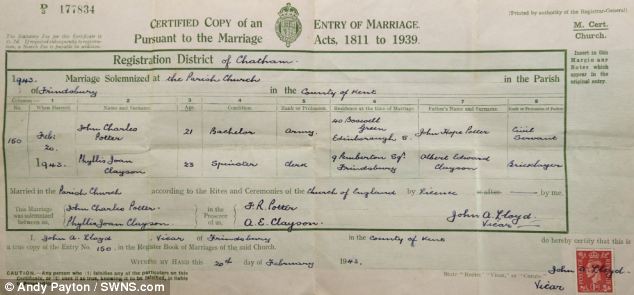 P
D 177834
CERTIFIED COPY of an ENTRY OF MARRIAGE.
Pursuant to the Marriage Acts, 1811 to 1939.
(Printed by authority of the Registrar-General)
M. Cert.
Church.
Insert in this
Margin any
Notes which
appear in the
original entry.
The Statutory Fee for this Certificate is
Registration District of Chatham.
1943. Marriage Solemnized at the Parish Church in the Parish
of Frindsbury in the County of Kent
Columns:— 1 2 3 4 5 6 7 8
No. When Married. Name and Surname. Age Condition. Rank or Profession. Residence at the time of Marriage. Father's Name and Surname. Rank or Profession of Father
150 Feb: 20. 1943.
John Charles Potter 21 Bachelor Army. 40 Boswell Green Edinborough, 5. John Hope Potter Civil Servant
Phyllis Joan Clayson 23 Spinster clerk 9 Pemberton Sq: Frindsbury Albert Edward Clayson Bricklayer
Married in the Parish Church according to the Rites and Ceremonies of the Church of England by Licence or after by me,
This Marriage was solemnized between us, John Charles Potter. Phyllis Joan Clayson. in the Presence of us, F. R. Potter A. E. Clayson. John A. Lloyd. Vicar
I, John A. Lloyd, Vicar of Frindsbury in the County of Kent do hereby certify that this is
a true copy of the Entry No. 150, in the Register Book of Marriages of the said Church.
WITNESS MY HAND this 20th day of February 1943.
John A. Lloyd
State "Rector," "Vicar," or "Curate" Vicar
CAUTION.—Any person who (1) falsifies any of the particulars on this
© Andy Payton / SWNS.com